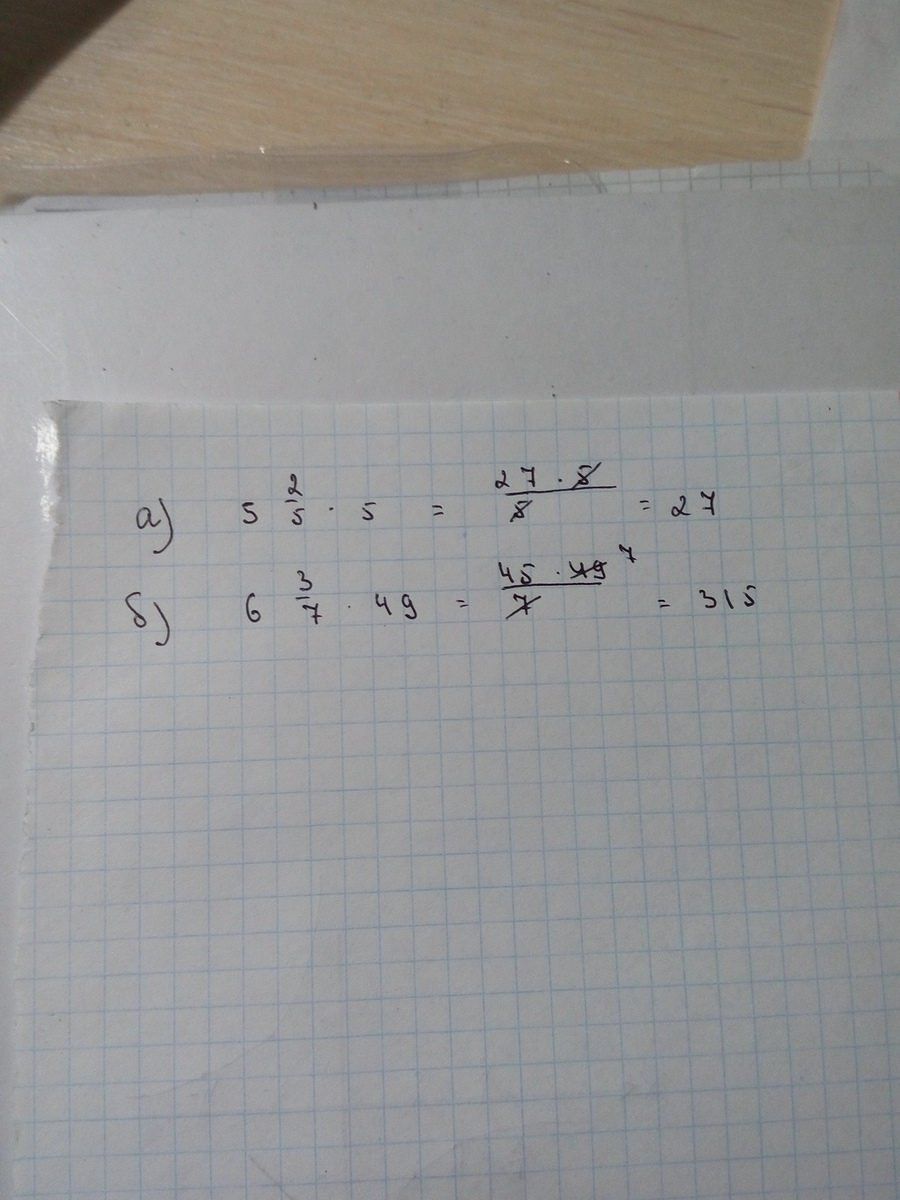 а) 5 2/5 · 5 = (27 · 5)/5 = 27
б) 6 3/7 · 49 = (45 · 49 7)/7 = 315